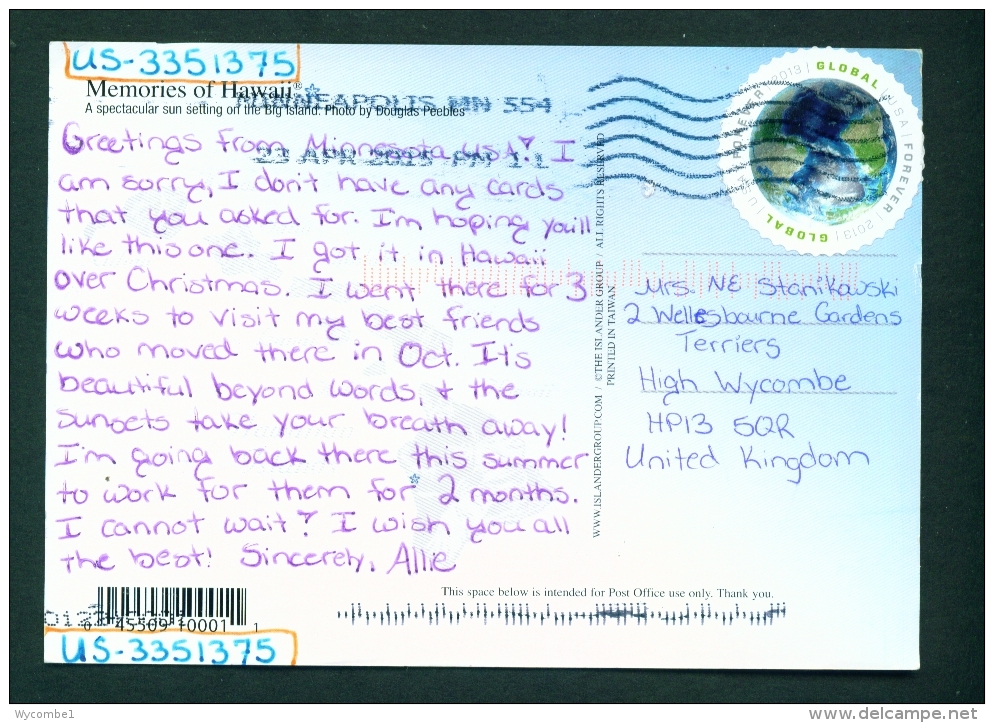 US-3351375
Memories of Hawaii®
A spectacular sun setting on the Big Island. Photo by Douglas Peebles
MINNEAPOLIS MN 554
Greetings from Minnesota, USA! I
am sorry, I don't have any cards
that you asked for. I'm hoping you'll
like this one. I got it in Hawaii
over Christmas. I went there for 3
weeks to visit my best friends
who moved there in Oct. It's
beautiful beyond words, + the
sunsets take your breath away!
I'm going back there this summer
to work for them for 2 months.
I cannot wait! I wish you all
the best! Sincerely, Allie
0 45509 10001 1
US-3351375
WWW.ISLANDERGROUP.COM / ©THE ISLANDER GROUP / ALL RIGHTS RESERVED
PRINTED IN TAIWAN
GLOBAL | USA | FOREVER | 2013 | GLOBAL | USA | FOREVER | 2013 |
Mrs. NE Stanikowski
2 Wellesbourne Gardens
Terriers
High Wycombe
HP13 5QR
United Kingdom
This space below is intended for Post Office use only. Thank you.
Wycombe1
www.delcampe.net